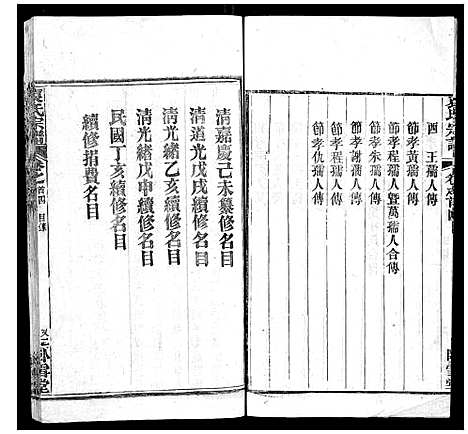 四 王孺人傳
節孝黃孺人傳
節孝謝孺人傳
節孝朱孺人傳
節孝程孺人暨萬孺人合傳
節孝程孺人傳
節孝仇孺人傳
清嘉慶己未纂修名目
清道光戊戌續修名目
清光緒乙亥續修名目
清光緒戊申續修名目
民國丁亥續修名目
續修捐費名目
卷之首四 目錄
臥雪堂